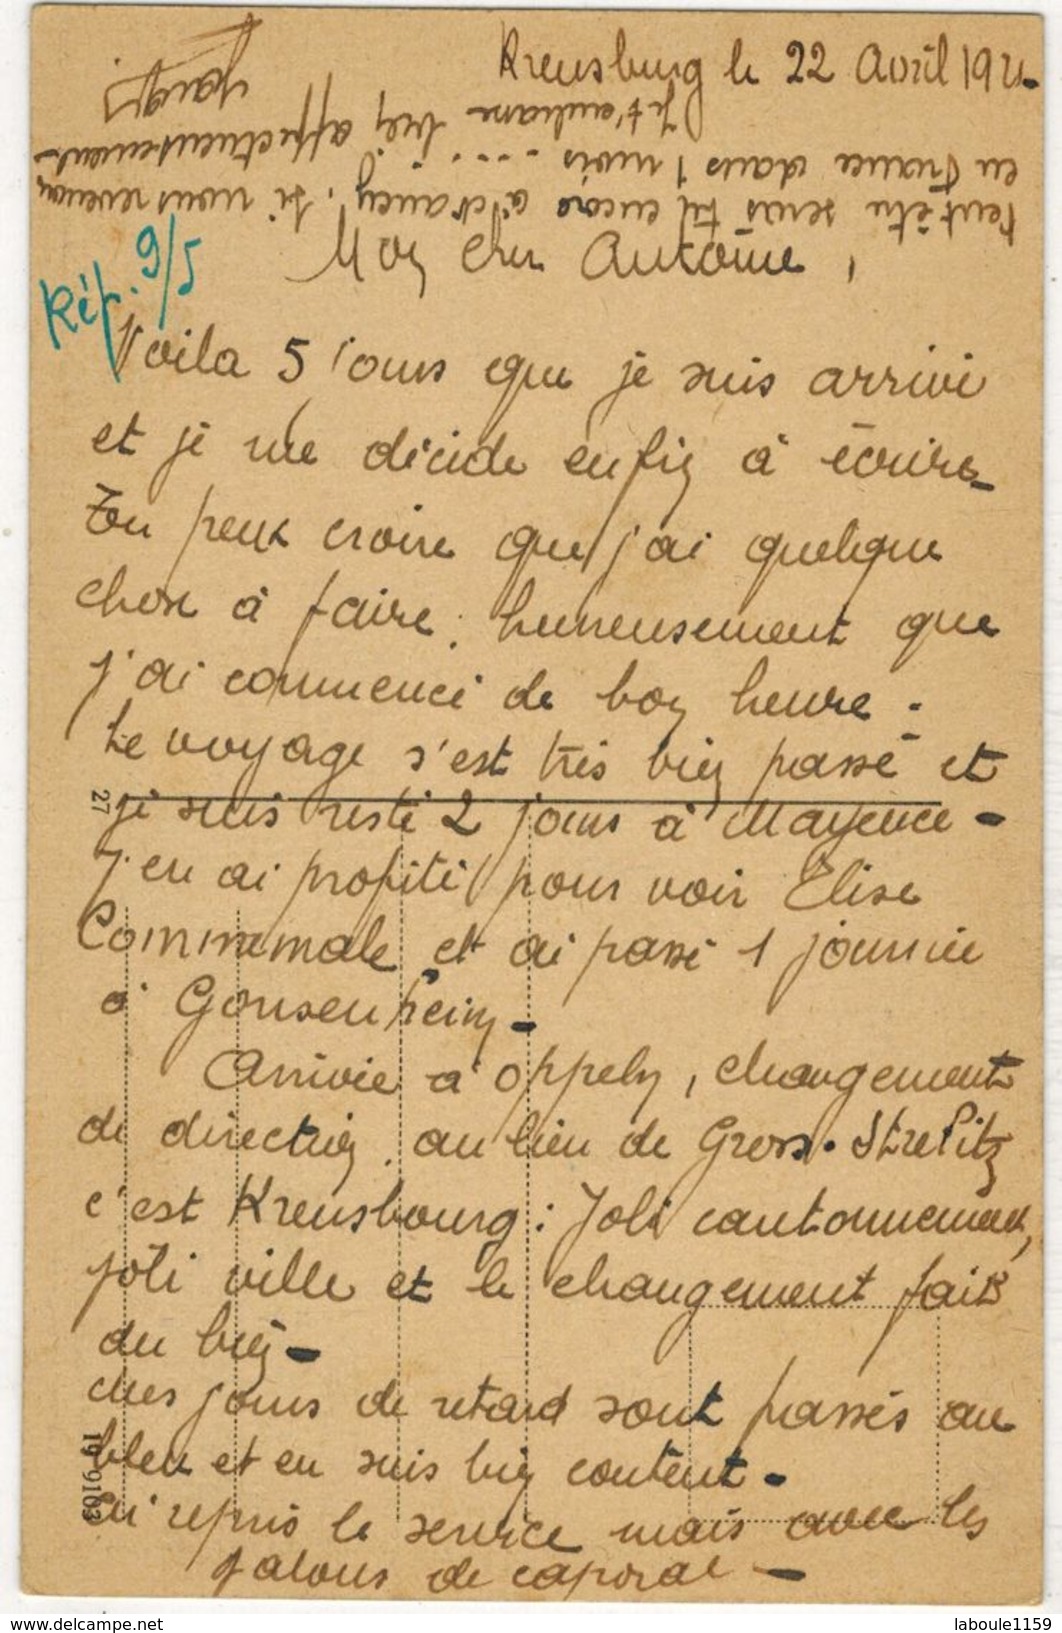 Kreusburg le 22 Avril 1921.
Mon cher Antoine,
Rép. 9/5
Voila 5 jours que je suis arrivé
et je me décide enfin à écrire.
Tu peux croire que j'ai quelque
chose à faire, heureusement que
j'ai commencé de bon heure.
Le voyage s'est très bien passé et
je suis resté 2 jours à Mayence.
J'en ai profité pour voir Elise
Commemale et ai passé 1 journée
à Gonsenheim.
Arrivée à Oppeln, changement
de direction, au lieu de Gross. Strelitz
c'est Kreusbourg : Joli cantonnement,
joli ville et le changement fait
du bien.
Mes jours de retard sont passés au
bleu et en suis bien content.
Ai repris le service mais avec les
galons de caporal.
Peut être seras tu encore à Nancy, si nous revenons
en France dans 1 mois ....
Je t'embrasse très affectueusement
27
19 9103
laboule1159